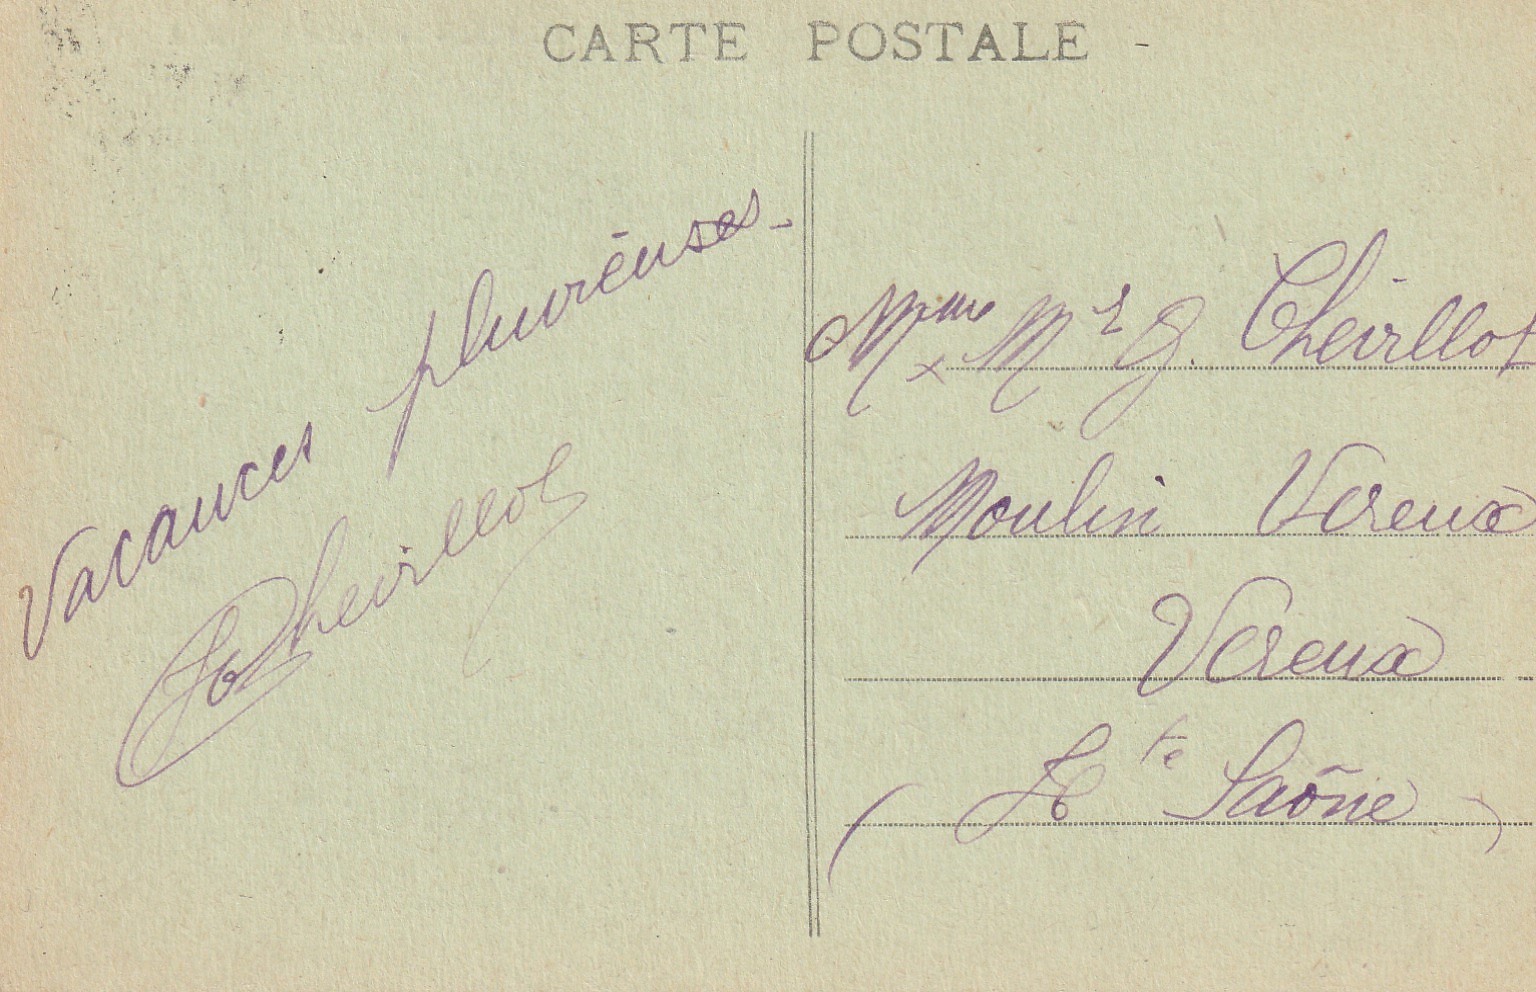 CARTE POSTALE
Vacances pluvieuses.
Cheirllot
Mme x Mr G. Cheirllot
Moulin Vereux
Vereux
( Hte Saône )